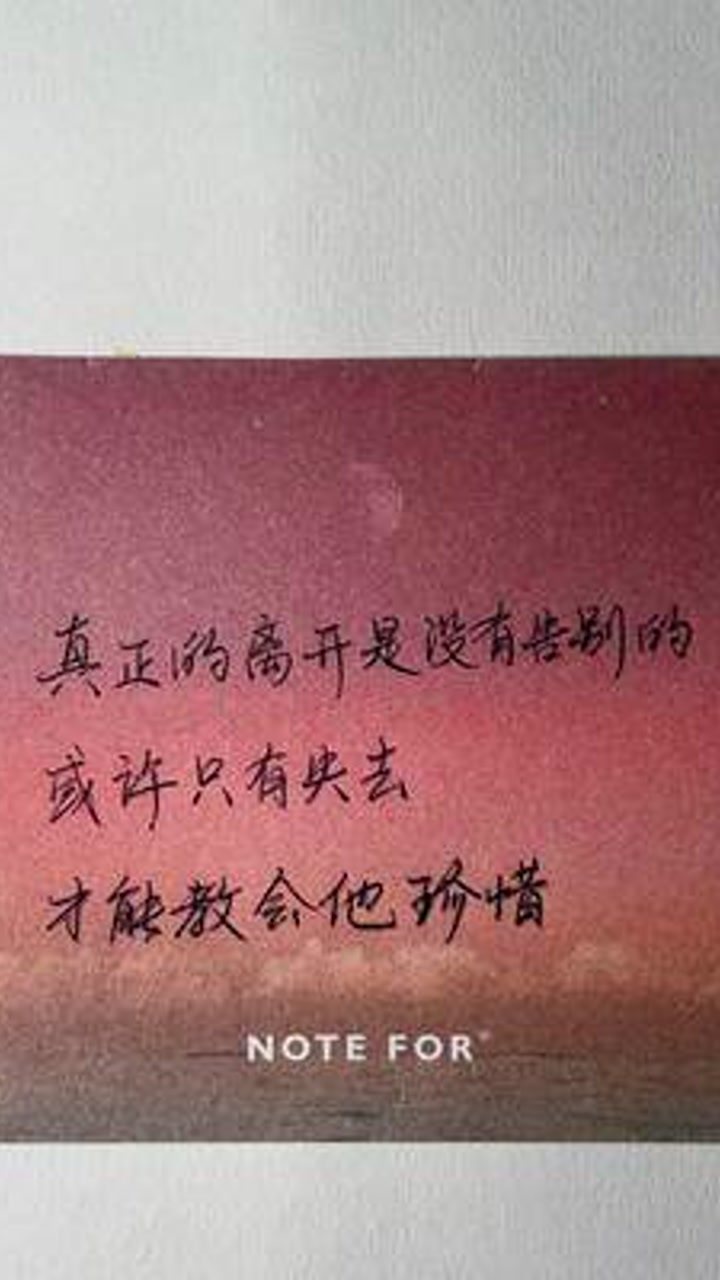 真正的离开是没有告别的
或许只有失去
才能教会他珍惜
NOTE FOR